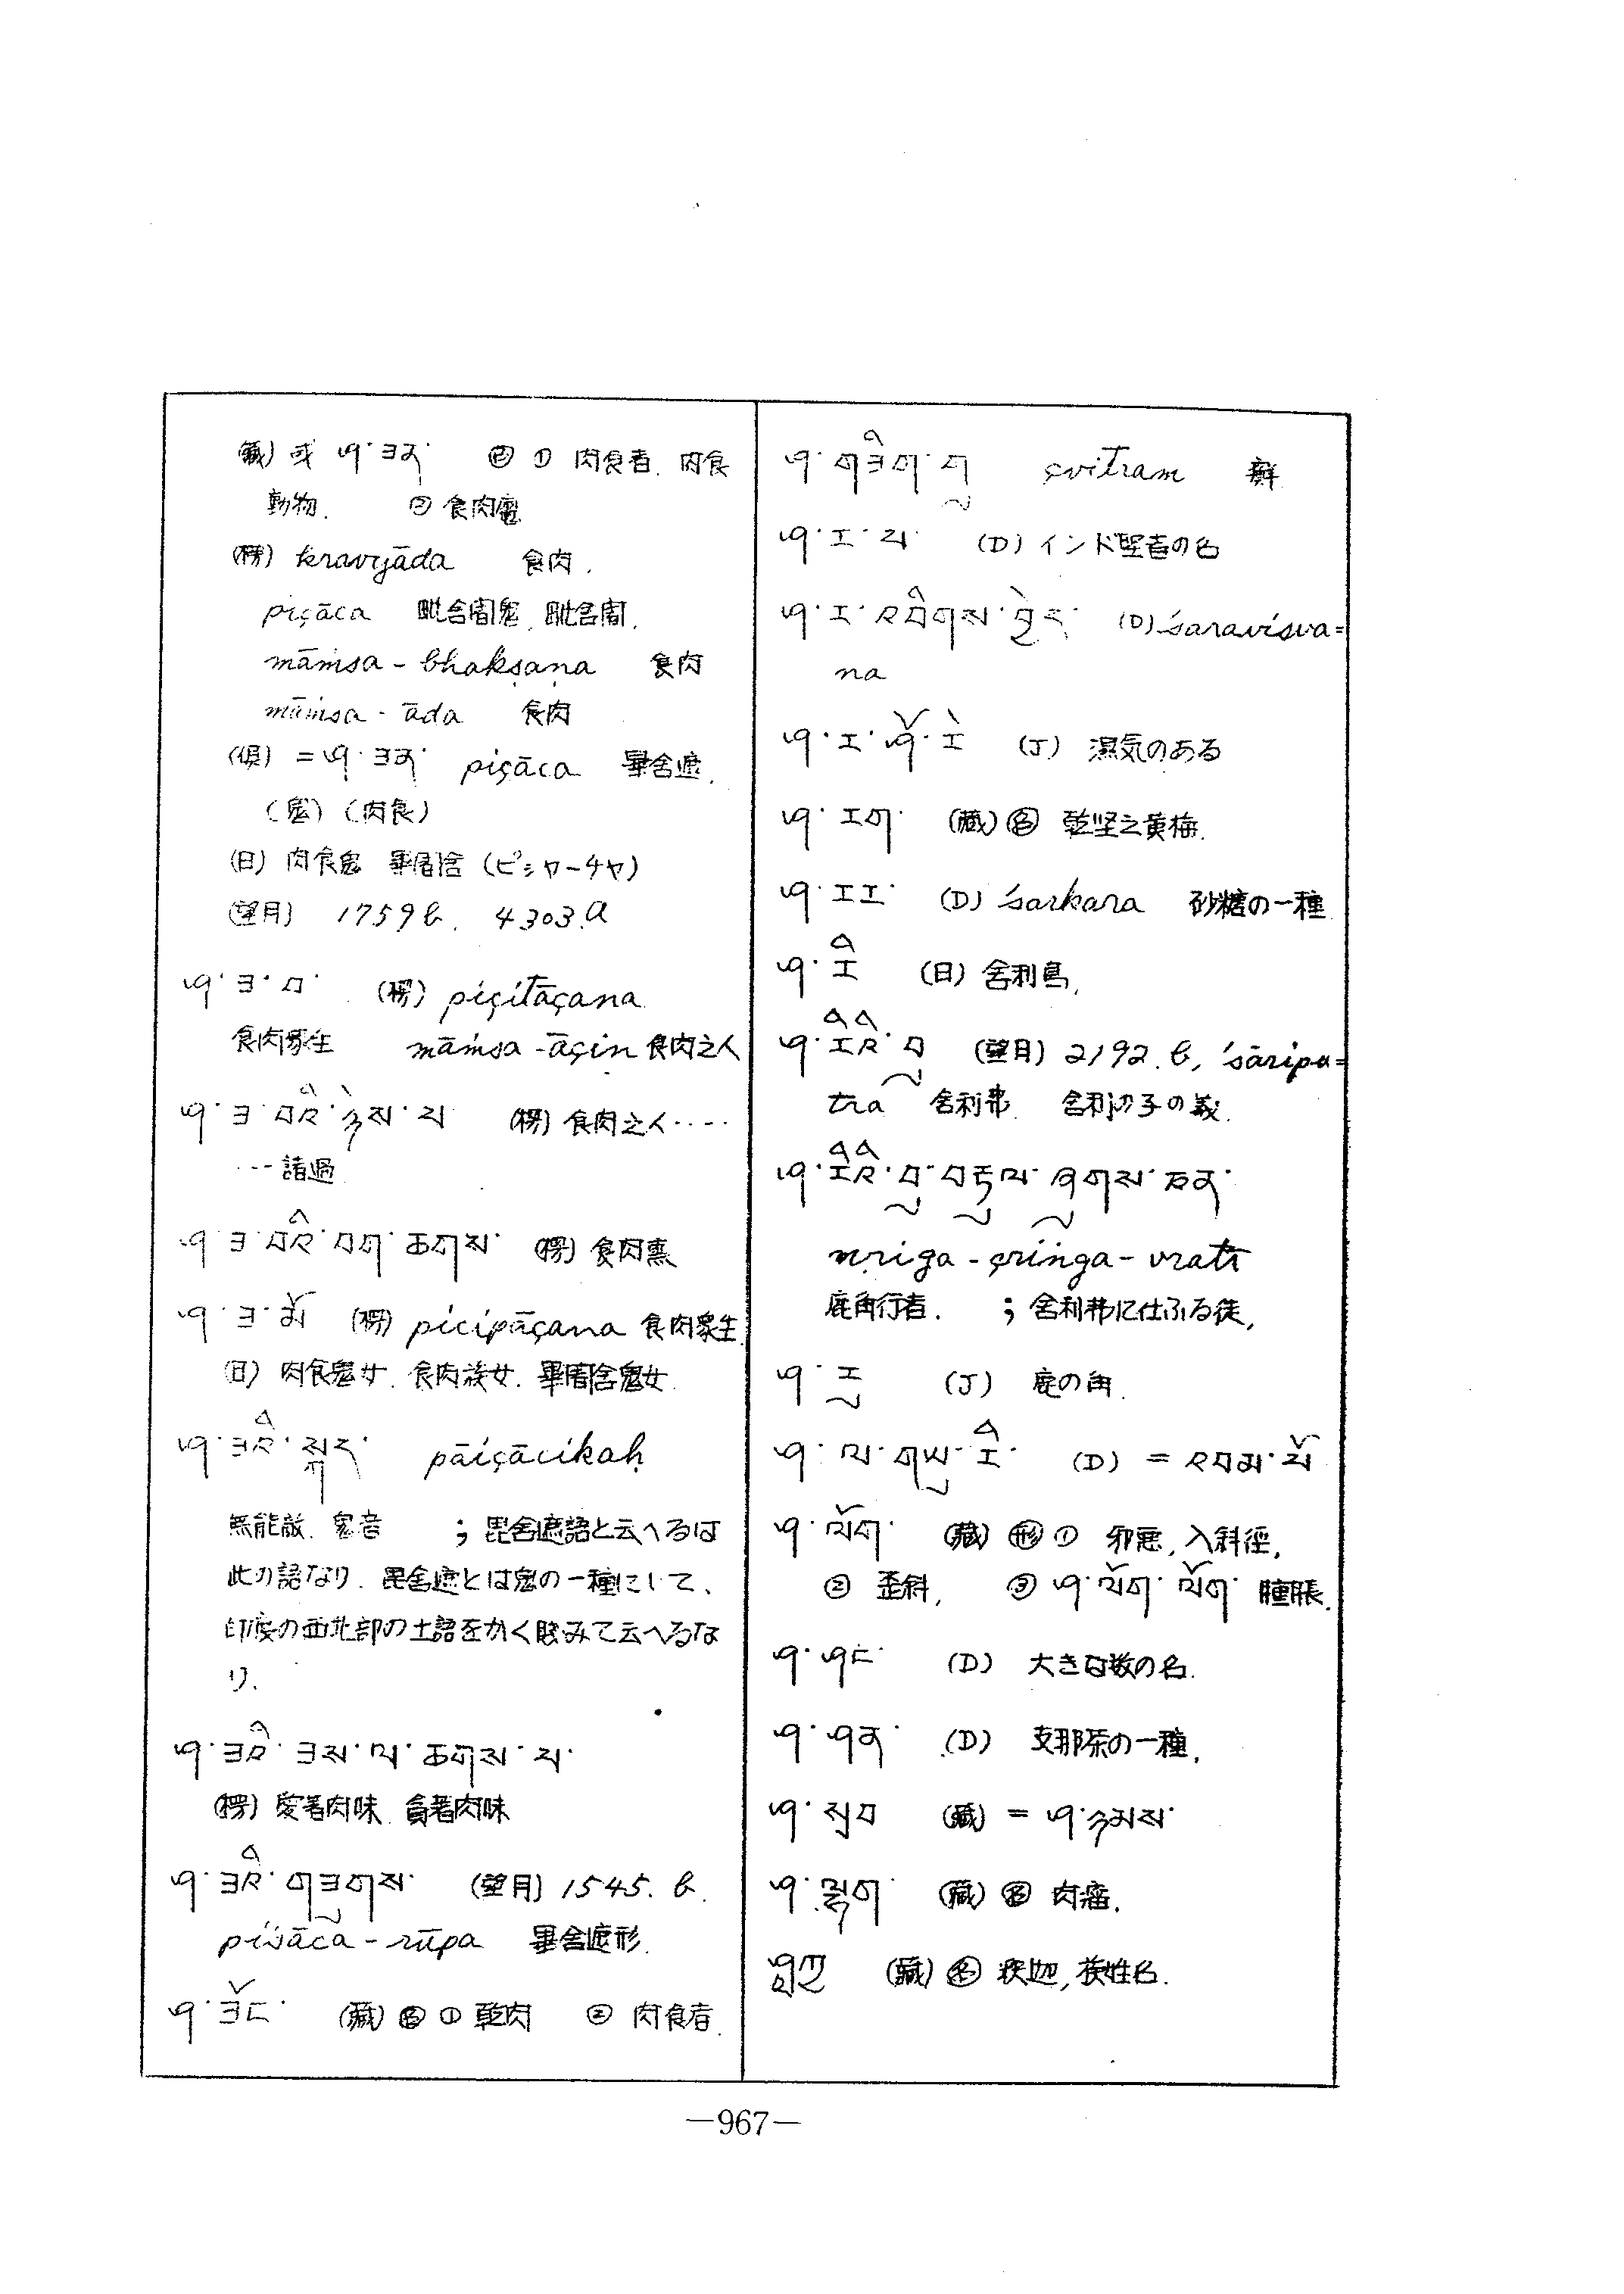 (藏) 或 ཤ་ཟན་ ㊁ ① 肉食者. 肉食
動物. ② 食肉魔
(榜) kravyāda 食肉.
piçāca 毗舍闍鬼, 毗舍闍.
māṁsa-bhakṣaṇa 食肉
māṁsa-āda 食肉
(倶) = ཤ་ཟན་ piçāca 畢舍遮.
(鬼) (肉食)
(日) 肉食鬼 畢届舍 (ピシャーチャ)
(望月) 1759 b. 4303.a
ཤ་ཟ་བ་ (榜) piçitāçana
食肉衆生 māṁsa-āçin 食肉之人
ཤ་ཟ་བའི་ཉེས་པ (榜) 食肉之人‥‥
‥‥諸過
ཤ་ཟ་བའི་བག་ཆགས་ (榜) 食肉熏
ཤ་ཟ་མོ (榜) picipāçana 食肉衆生
(日) 肉食鬼女. 食肉族女. 畢届舍鬼女.
ཤ་ཟའི་སྐད་ pāiçācikaḥ
無能敵. 鬼音 ; 毘舍遮語と云へるは
此の語なり. 毘舍遮とは鬼の一種にして、
印度の西北部の土語をかく貶みて云へるな
り.
ཤ་ཟའི་ཟས་ལ་ཆགས་པ་
(榜) 愛着肉味. 貪著肉味
ཤ་ཟའི་གཟུགས་ (望月) 1545. b.
piśāca-rūpa 畢舍遮形.
ཤ་ཟོང་ (藏) ㊔ ① 乾肉 ② 肉食者.
ཤ་གཟིག་གུ çvitram 癬
ཤ་ར་པ (D) インド堅者の名
ཤ་ར་འབིགས་བྱེད་ (D) śaraviśva=
na
ཤ་ར་ཤོ་རེ (J) 濕気のある
ཤ་རག་ (藏) ㊔ 乾坚之黄梅.
ཤ་རར་ (D) śarkara 砂糖の一種
ཤ་རི (日) 舍利鳥,
ཤ་རིའི་བུ (望月) 2192.b, śāripu=
tra 舍利弗 舍利の子の義.
ཤ་རིའི་བུ་བརྟུལ་ཞུགས་ཅན་
mṛiga-çriṅga-vrati
鹿角行者. ; 舍利弗に仕ふる徒,
ཤ་རུ (J) 鹿の角.
ཤ་ལ་གཡུ་རི་ (D) = འབམ་པོ
ཤ་ལོག་ (藏) ㊒ ① 邪悪, 入斜徑,
② 歪斜, ③ ཤ་ལོག་ལོག་ 腫脹.
ཤ་ཤང་ (D) 大きな数の名.
ཤ་ཤན་ (D) 支那茶の一種,
ཤ་སུབ (藏) = ཤ་ཉམས་
ཤ་ལྷག་ (藏) ㊔ 肉瘤,
ཤཱཀྱ (藏) ㊔ 释迦, 族姓名.
—967—